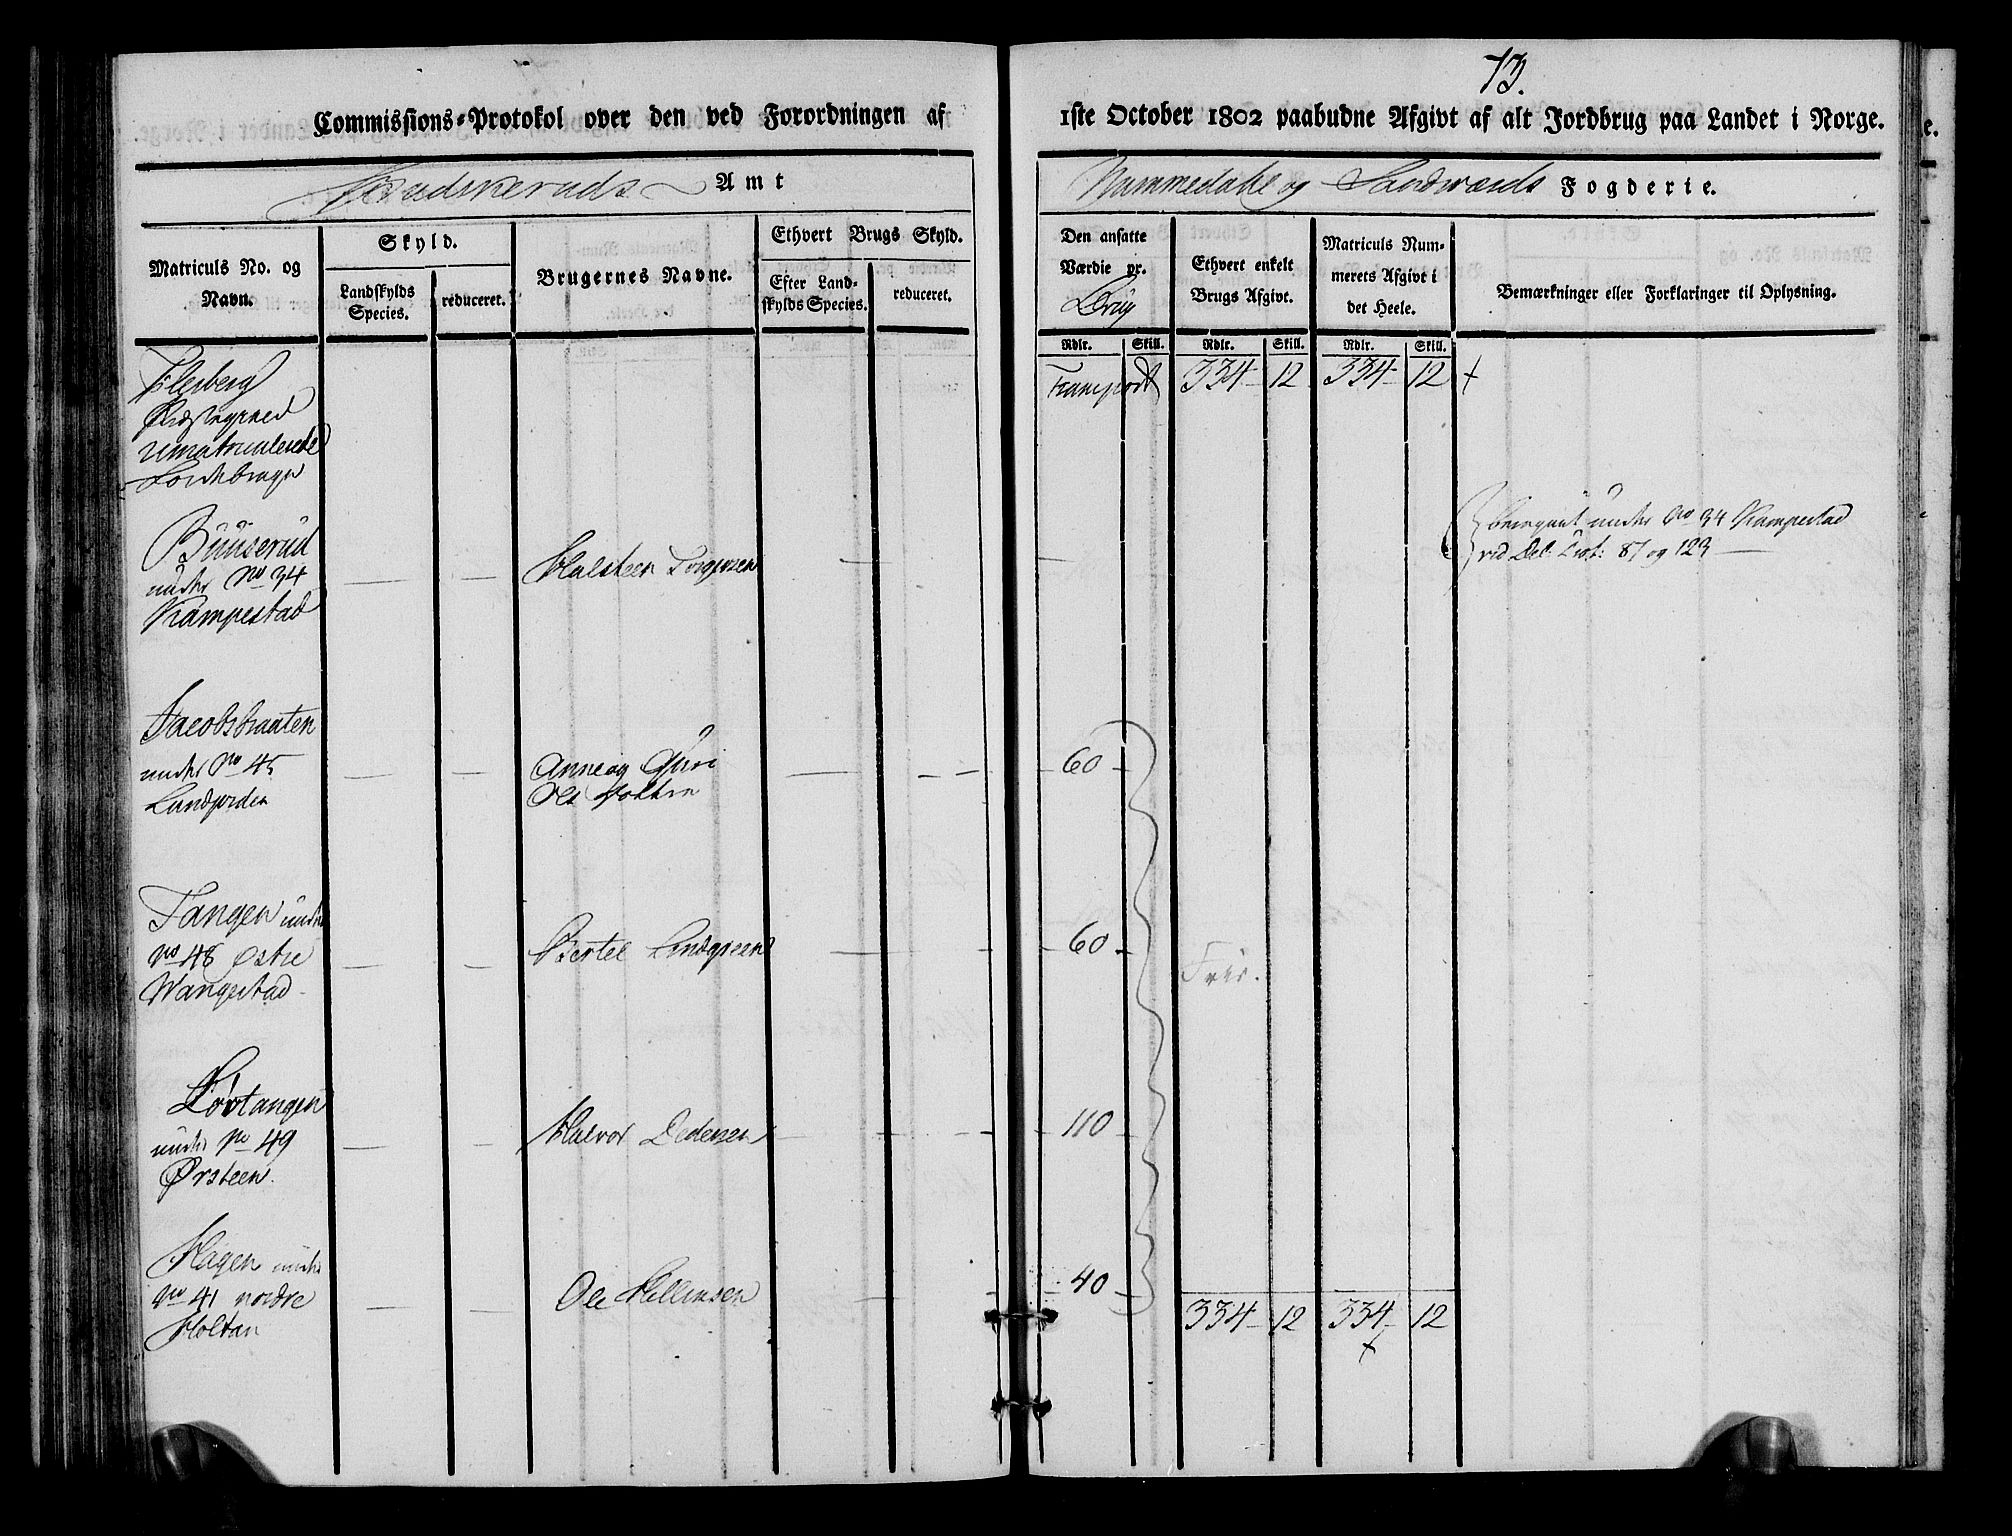 73.
Commissions-Protokol over den ved Forordningen af 1ste October 1802 paabudne Afgivt af alt Jordbrug paa Landet i Norge.
Budskeruds Amt
Nummedahl og Sandsværds Fogderie.
Matriculs No. og Navn.
Skyld.
Landskylds Species.
reduceret.
Brugernes Navne.
Ethvert Brugs Skyld.
Efter Landskylds Species.
reduceret.
Den ansatte Værdie pr. Brug
Ethvert enkelt Brugs Afgivt.
Matriculs Nummerets Afgivt i det Heele.
Bemærkninger eller Forklaringer til Oplysning.
Rdlr. Skill. Rdlr. Skill. Rdlr. Skill.
Flesberg
Præstegield
umatriculerede
Jordebruge
Transport 334 12 334 12 +
Buuserud
under No 34
Kampestad
Halsteen Torgersen
under No 34 Kampestad
vid Del. Prot: 87 og 123
Jacobsbraaten
under No 45
Anne og Guri
60
Tangen under
No 48 østre
Wangestad
Bertel Lindgreen
60
Frie.
Løvtangen
under No 49
Ørsteen
Halvor Pedersen
110
Hagen under
No 41 nordre
Holtan
Ole Hellensen
40
334 12 334 12
+